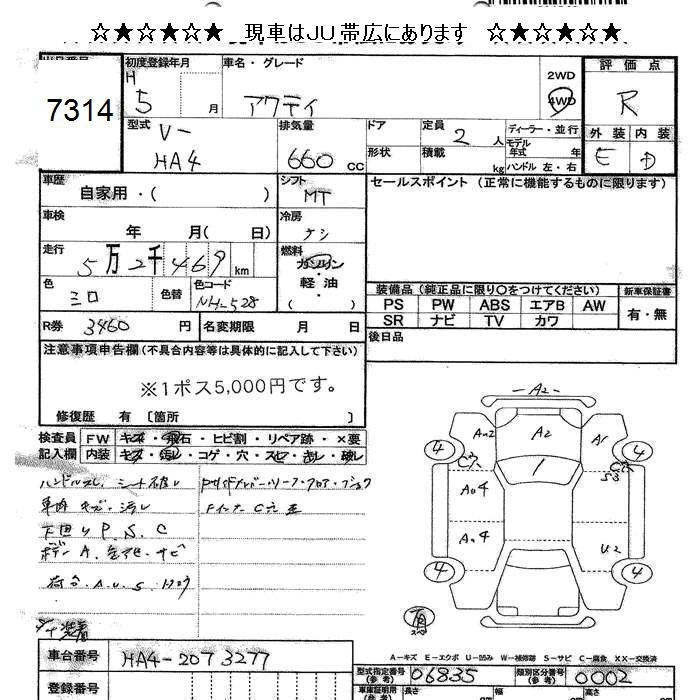 ☆★☆★☆★☆ 現車はJU帯広にあります ☆★☆★☆★☆
初度登録年月 車名・グレード 評価点
7314
H 5 月 アクティ 2WD 4WD R
型式 V-HA4 排気量 660 CC ドア 形状 定員 2 人 積載 kg ディーラー・並行 モデル年式 年 ハンドル 左・右 外装 E 内装 D
車歴 自家用・( ) シフト MT セールスポイント (正常に機能するものに限ります)
車検 年 月( 日) 冷房 ナシ
走行 5万2千469km 燃料 ガソリン 軽油 ( )
色 シロ 色替 色コード NH-528 装備品 (純正品に限り○をつけてください) 新車保証書
PS PW ABS エアB AW 有・無
SR ナビ TV カワ
R券 3460 円 名変期限 月 日 後日品
注意事項申告欄 (不具合内容等は具体的に記入して下さい)
※1ポス5,000円です。
修復歴 有 〔箇所 〕
検査員 FW キズ・飛石・ヒビ割・リペア跡・×要
記入欄 内装 キズ・汚レ・コゲ・穴・スレ・キレ・破レ
ハンドルスレ、シート破レ
車内 キズ・汚レ
下回り P、S、C
ボデー A、
荷台、A、U、S、
A2
A2
A1
1
4
4
C穴
C穴
S3
4
4
U2
A-キズ E-エクボ U-凹み W-補修跡 S-サビ C-腐食 XX-交換済
車台番号 HA4-2073277
登録番号
型式指定番号(参考) 06835 類別区分番号(参考) 0002
車庫証明用(参考) 長さ cm 幅 cm 高さ cm